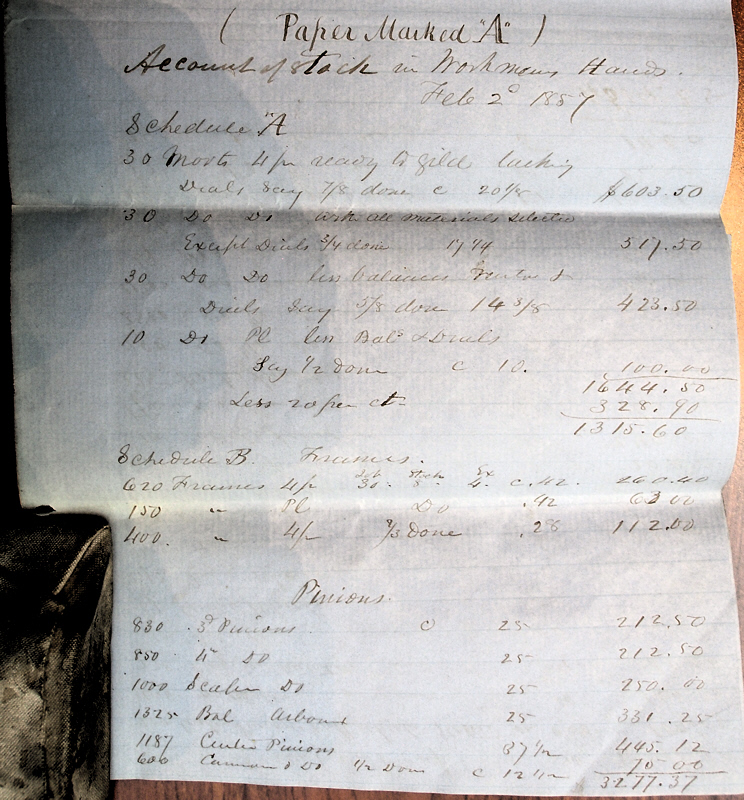 ( Paper Marked "A" )
Account of Stock in Workmens Hands.
Feb 2d 1857
Schedule "A"
30 Movts 4/pr ready to gild lacking
Dials Say 7/8 done @ 20 1/8 $603.50
30 Do Do with all materials selected
Except Dials 3/4 done 17 1/4 517.50
30 Do Do less balances &
Dials Say 5/8 done 14 3/8 423.50
10 Do Pl less Bals & Dials
Say 1/2 done @ 10. 100.00
1644.50
Less 20 per ct 328.90
1315.60
Schedule B. Frames.
620 Frames 4/pr 30. Stock 8. Ex 4. @ .42. 260.40
150 " Pl Do .42 63 00
400. " 4/pr 2/3 Done .28 112.00
Pinions.
830 3d Pinions @ 25 212.50
850 4th Do 25 212.50
1000 Scape Do 25 250.00
1325 Bal Arbours 25 331.25
1187 Center Pinions 37 1/2 445.12
600 Cannon Do 1/2 Done @ 12 1/2 75 00
3277.37